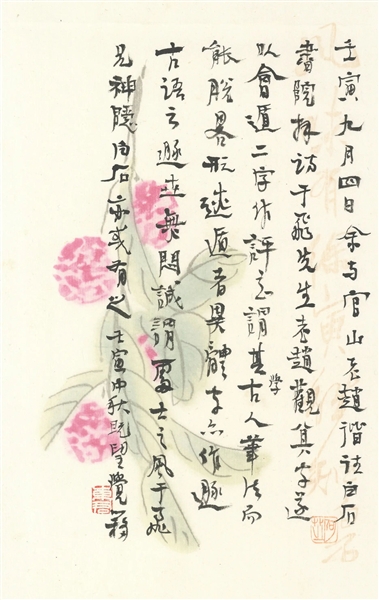 壬寅九月四日余与官山老趙偕諸白石
書院拜訪于飛先生老趙觀其字遂
以會遁二字作評意謂其學古人筆法而
能脫畧形迹遁者異體字亦作遯
古語云遯世無悶誠謂居士之風于飛
兄神隱白石亦或有之壬寅中秋既望覺翁